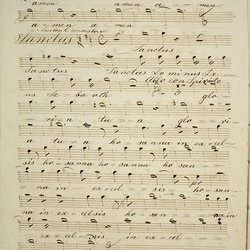 amen amen a
amen amen
Sanctus Sanctus
Sanctus Sanctus Dominus De
us Sabaoth glo
ri a tua glo ri
a tua hosanna in excel
sis hosanna hosanna hosan
na in excel sis hosan
na in excelsis hosan na in
excel sis